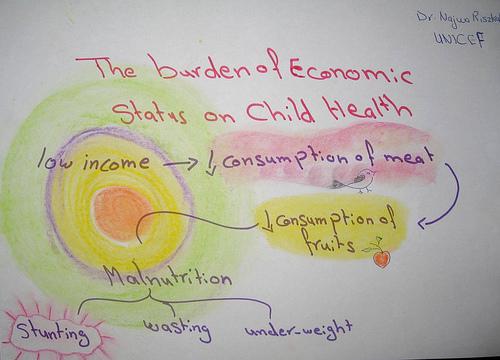 Dr. Najwa
UNICEF
The burden of Economic
Status on Child Health
low income → ↓ consumption of meat
↓ consumption of
fruits
Malnutrition
Stunting
wasting
under-weight